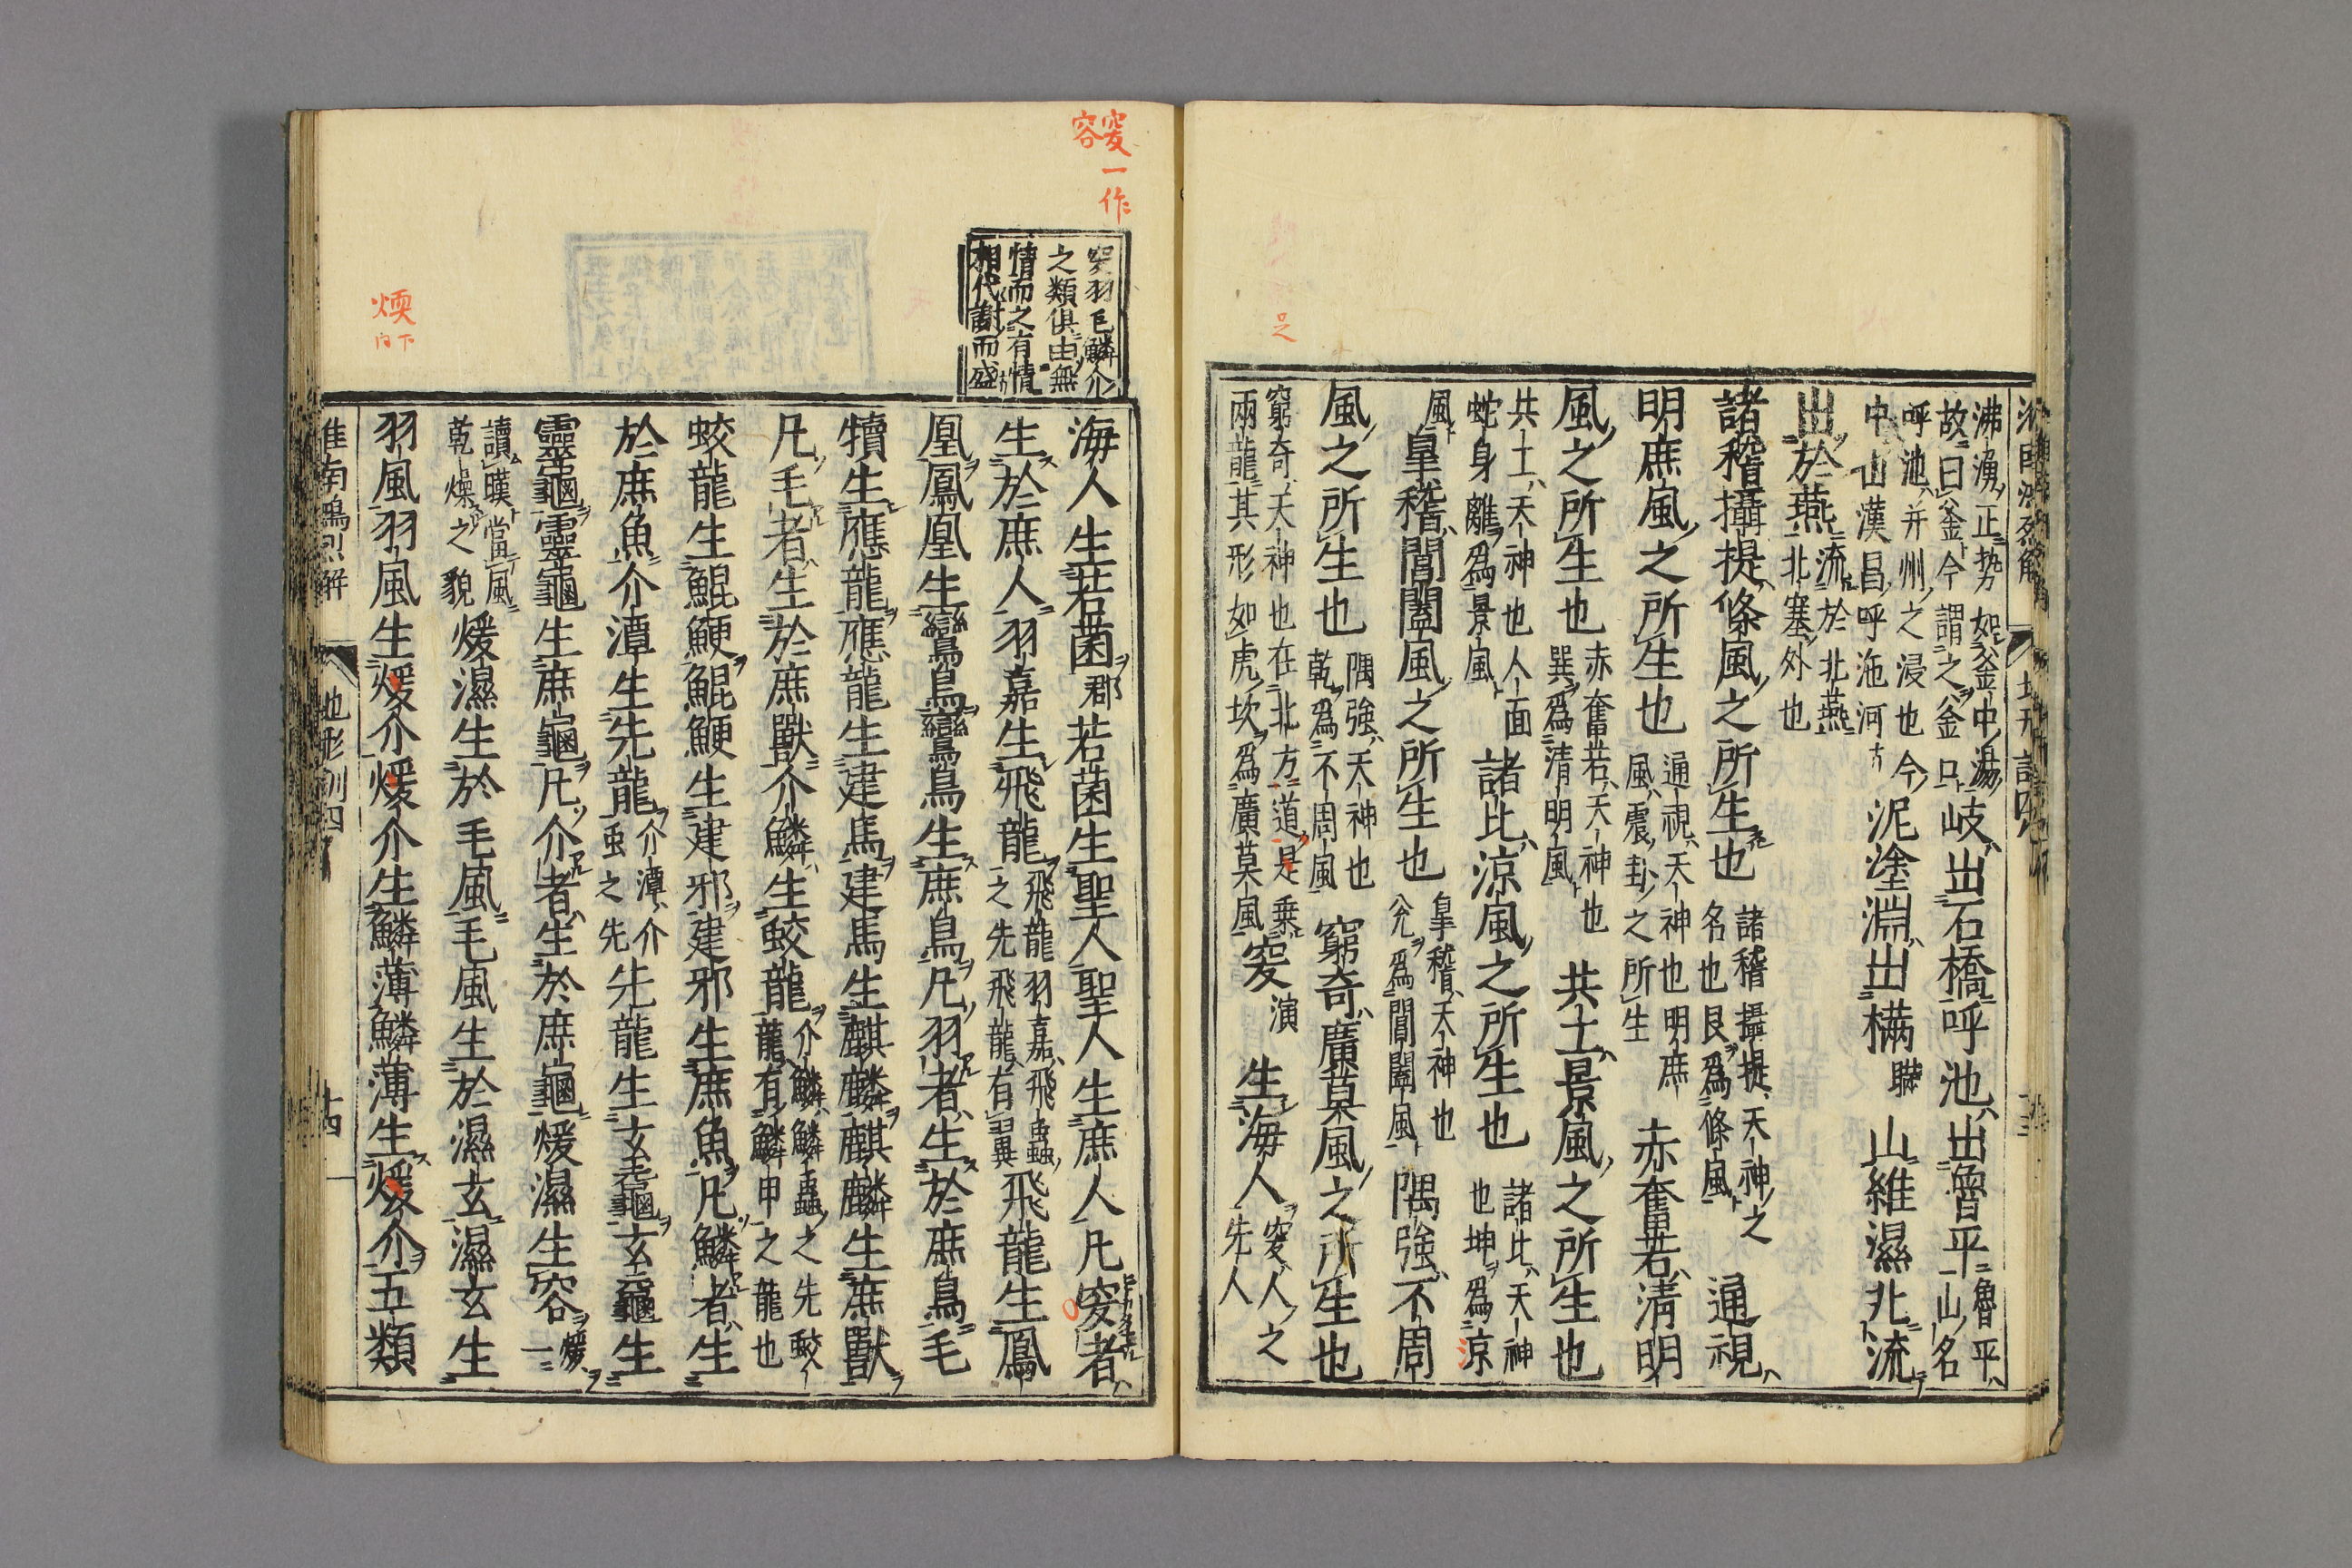 沸湧正勢如釜中湯岐出石橋呼池出魯平魯平山名
故曰釜今謂之釜口
呼池并州之浸也今泥塗淵出樠聯山維濕北流
中山漢昌呼沲河
出於燕流於北燕北塞外也
諸稽攝提條風之所生也諸稽攝提天神之名也艮爲條風通視
明庶風之所生也通視天神也明庶風震卦之所生赤奮若清明
風之所生也赤奮若天神也巽爲清明風共土景風之所生也
共土天神也人面蛇身離爲景風諸比涼風之所生也諸比天神也坤爲涼
風皐稽閶闔風之所生也皐稽天神也兊爲閶闔風隅強不周
風之所生也隅強天神也乾爲不周風窮奇廣莫風之所生也
窮奇天神也在北方道是乗兩龍其形如虎坎爲廣莫風㝔演生海人㝔人之先人
㝔一作容
㝔羽毛鱗介
之類俱由無
情而之有情
相代謝而盛
海人生若菌郡若菌生聖人聖人生庶人凡㝔者
生於庶人羽嘉生飛龍飛龍羽嘉飛蟲之先飛龍有翼飛龍生鳳
凰鳳凰生鸞鳥鸞鳥生庶鳥凡羽者生於庶鳥毛
犢生應龍應龍生建馬建馬生麒麟麒麟生庶獸
凡毛者生於庶獸介鱗生蛟龍介鱗鱗蟲之先蛟龍有鱗甲之龍也
蛟龍生鯤鯁鯤鯁生建邪建邪生庶魚凡鱗者生
於庶魚介潭生先龍介潭介虫之先先龍生玄黿玄黿生
靈龜靈龜生庶龜凡介者生於庶龜煖濕生容煖一
讀暵當風乾燥之貌煖濕生於毛風毛風生於濕玄濕玄生
羽風羽風生煖介煖介生鱗薄鱗薄生煖介五類
煗下
同
淮南鴻烈解 地形訓四 十四